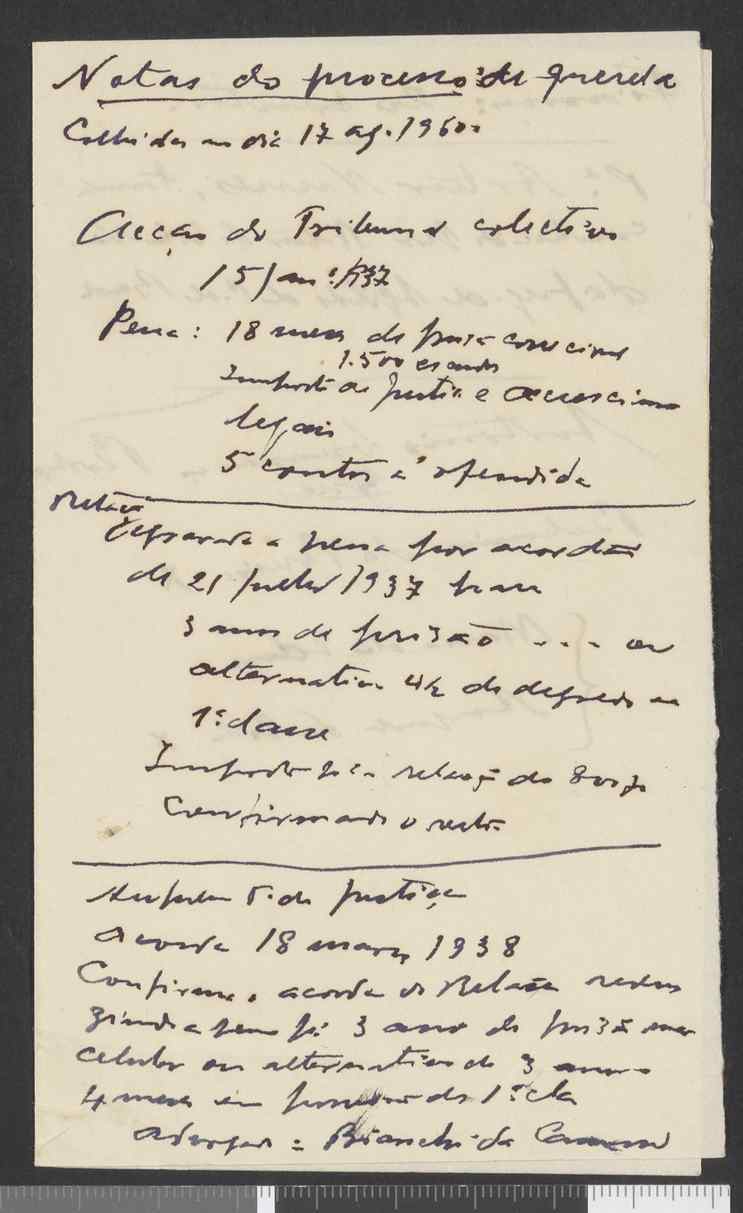 Notas do processo de querela
Colhidas no dia 17 ag. 1960
Acção do Tribunal colectivo
15 Jan.º 1937
Pena: 18 meses de prisão correcional
1.500 escudos
Imposto de Justiça e acrescimos
legais
5 contos à ofendida
Relação
Agravada a pena por acordão
de 21 Julho 1937 para
3 anos de prisão ... ou
alternativa 4 1/2 de degredo em
1ª classe
Imposto relação de
Confirmando o resto
Supremo T. de Justiça
Acordão 18 março 1938
Confirma o acordão da Relação redu
zindo a pena p.ª 3 anos de prisão maior
celular ou alternativa de 3 anos e
4 meses em de 1ª cla
Advogado: Bianchi da Camara